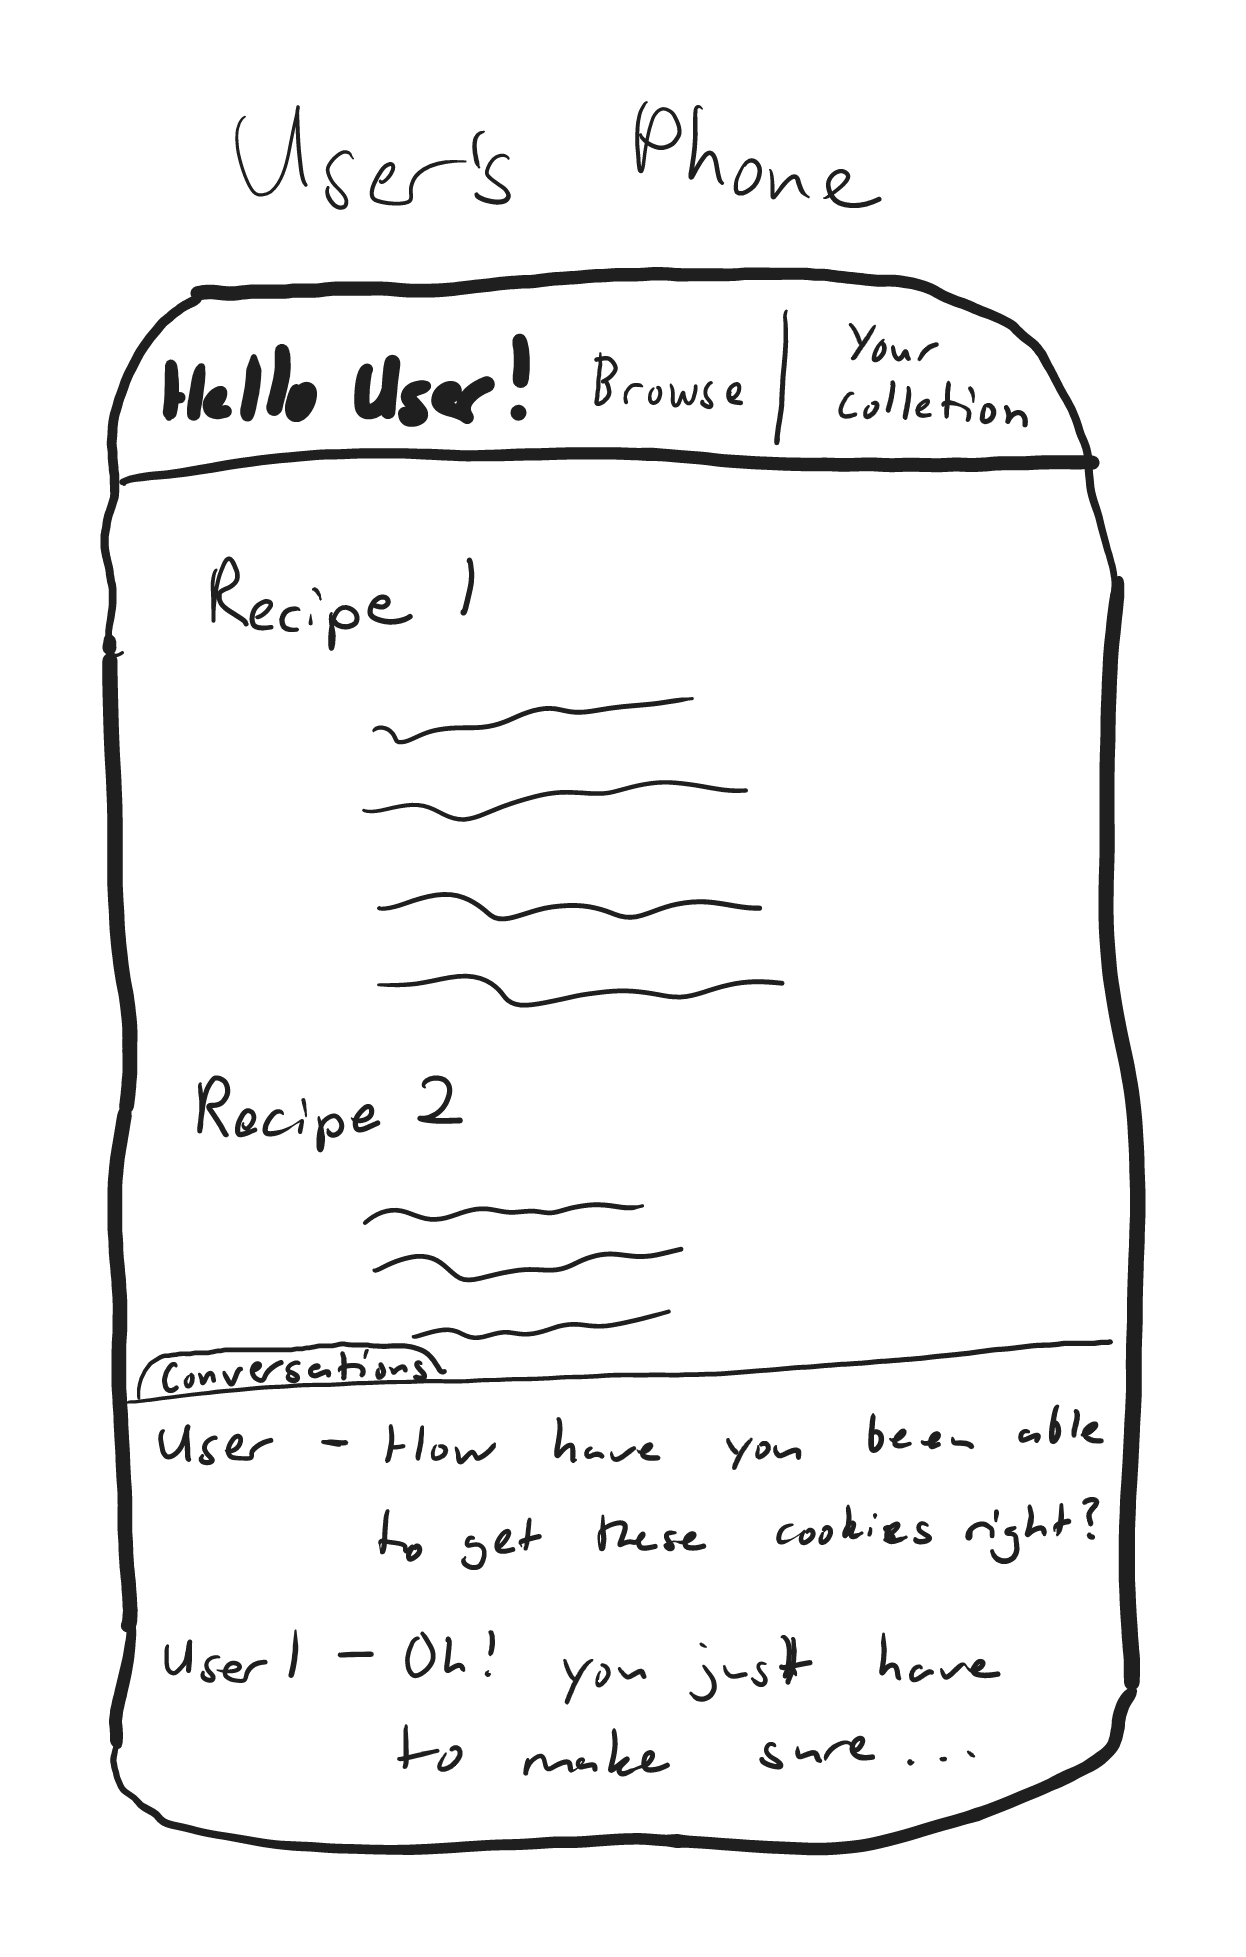 User's Phone
Hello User! Browse
Your
colletion
Recipe 1
Recipe 2
Conversations
User - How have you been able
to get these cookies right?
User 1 - Oh! you just have
to make sure...